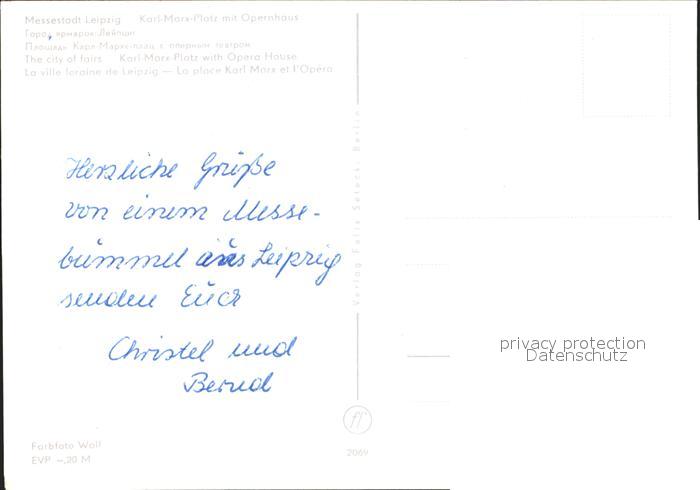 Messestadt Leipzig Karl-Marx-Platz mit Opernhaus
Город ярмарок Лейпциг
Площадь Карл-Маркс-плац с оперным театром
The city of fairs Karl-Marx-Platz with Opera House
La ville foraine de Leipzig — La place Karl Marx et l'Opéra
Herzliche Grüße
von einem Messe-
bummel aus Leipzig
senden Euch
Christel und
Bernd
Farbfoto Woll
EVP –,20 M
Verlag Felix Setecki Berlin
ff
2069
privacy protection
Datenschutz